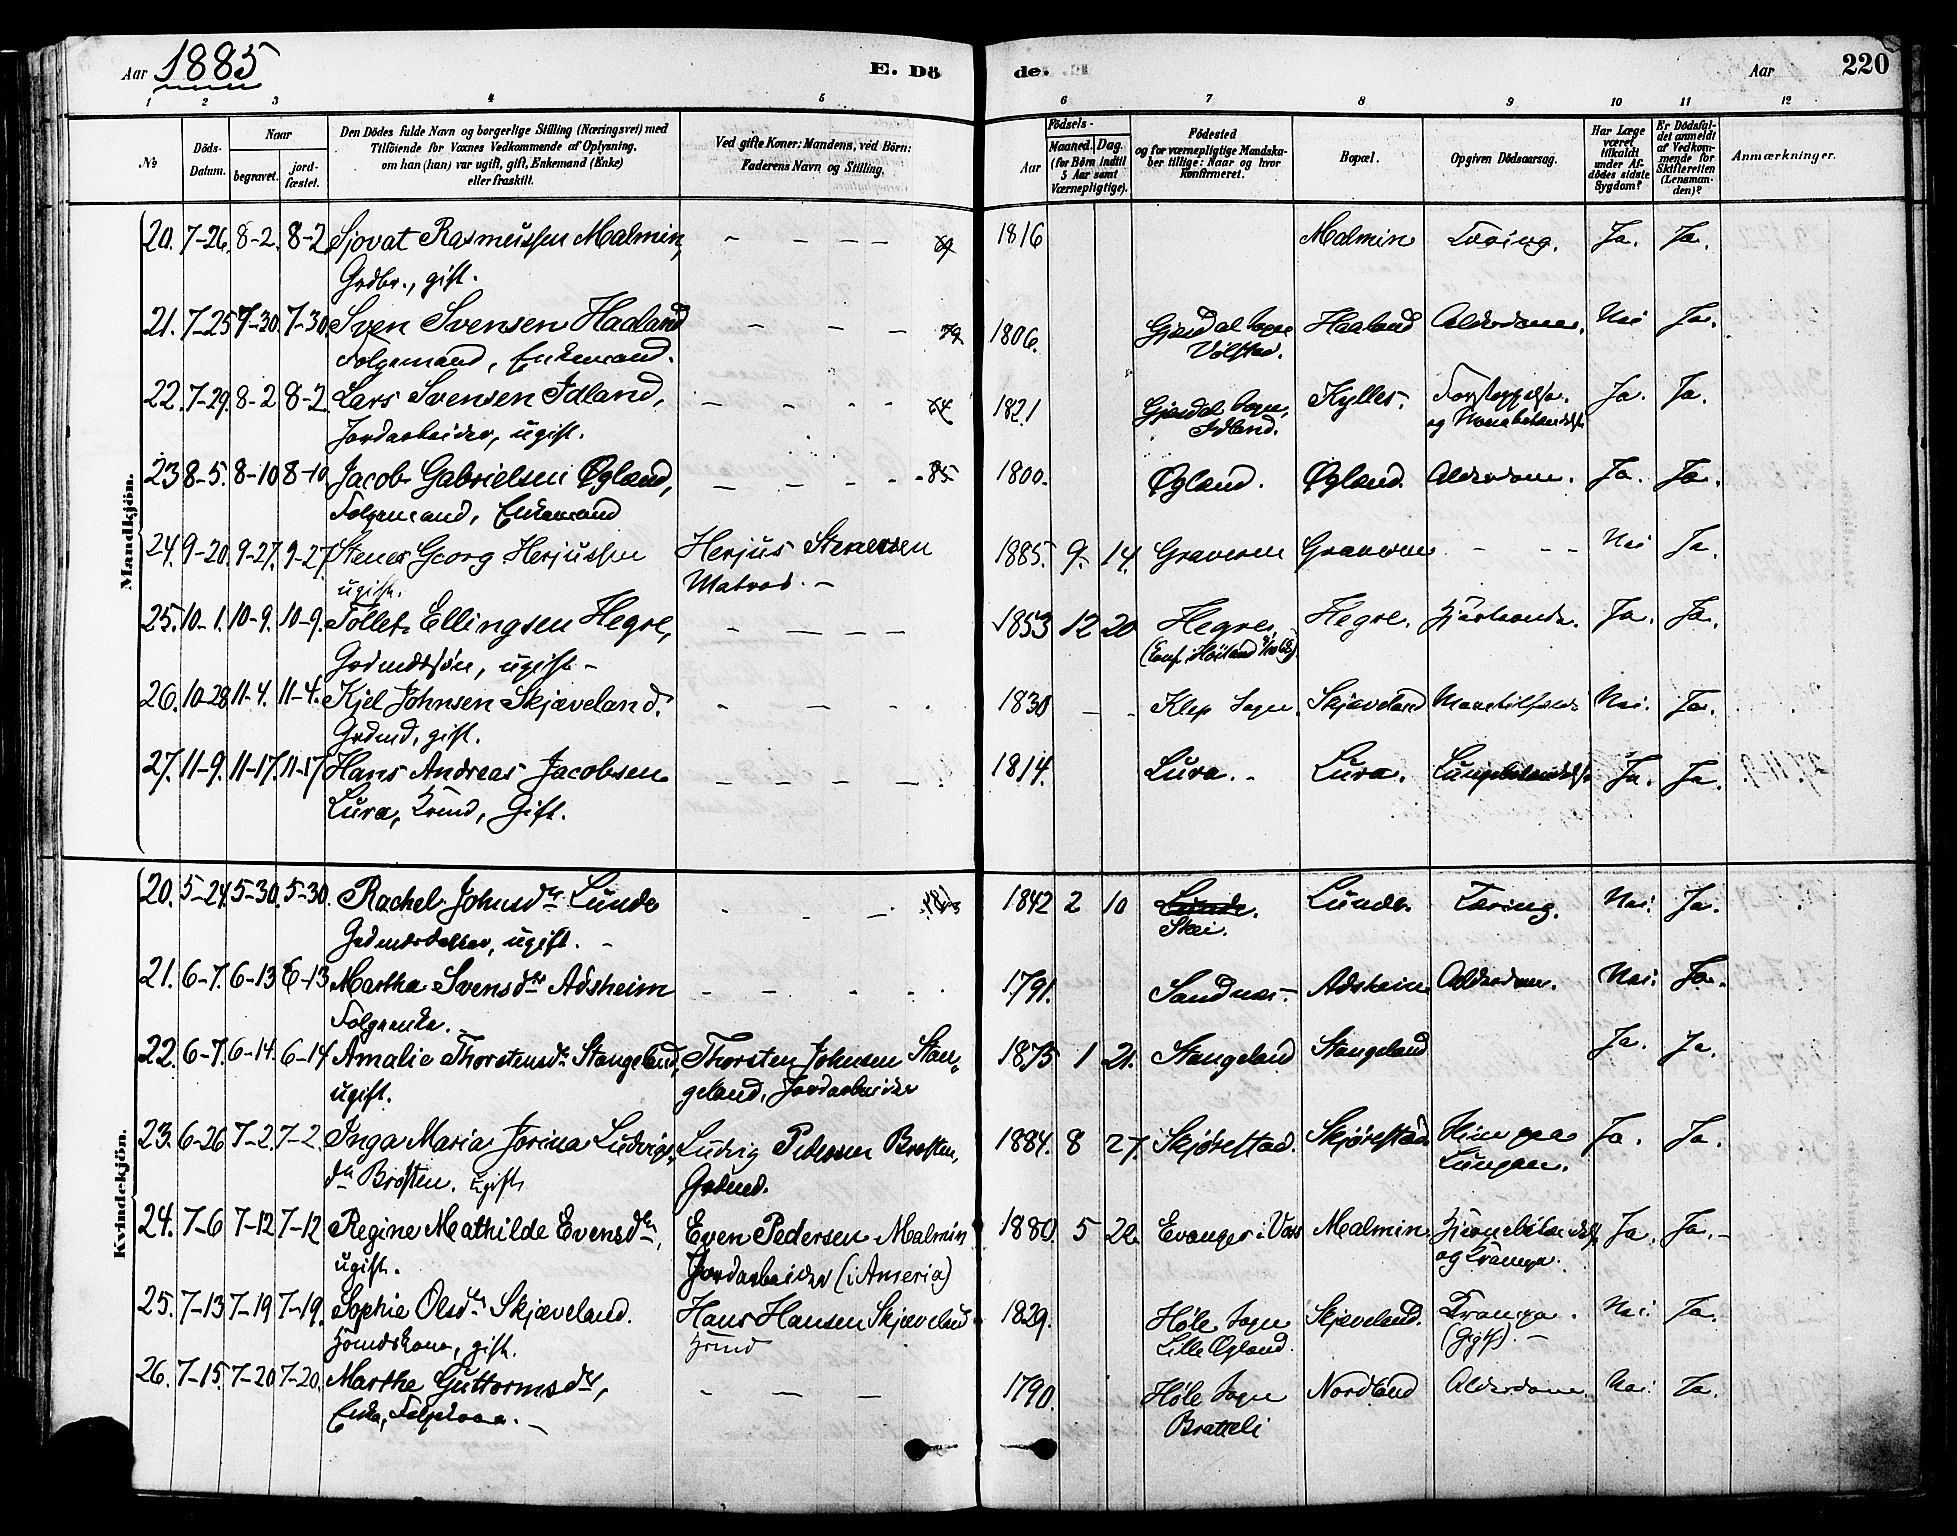 Aar 1885
E. Dö
de.
Aar
220
1 2 3 4 5 6 7 8 9 10 11 12
No
Döds-Datum.
Naar
begravet.
jord-fæstet.
Den Dödes fulde Navn og borgerlige Stilling (Næringsvei) med
Tilföiende for Voxnes Vedkommende af Oplysning,
om han (han) var ugift, gift, Enkemand (Enke)
eller fraskilt.
Ved gifte Koner: Mandens, ved Börn:
Faderens Navn og Stilling.
Födsels-
Aar
Maaned. Dag.
(for Börn indtil
5 Aar samt
Værnepligtige).
Födested
og for værnepligtige Mandska-
ber tillige: Naar og hvor
Konfirmeret.
Bopæl.
Opgiven Dödsaarsag.
Har Læge
været
tilkaldt
under Af-
dödes sidste
Sygdom?
Er Dödsfal-
det anmeldt
af Vedkom-
mende for
Skifteretten
(Lensman-
den)?
Anmærkninger.
Mandkjön.
20. 7-26. 8-2. 8-2 Sjovat Rasmussen Malmin, 69 1816 Malmin Tæring. Ja. Ja.
Grdbr., gift.
21. 7-25 7-30. 7-30. Sven Svensen Haaland 79 1806. Gjesdal Sogn Haaland Alderdom. Nei Ja.
Folgemand, Enkemand. Vølstad.
22. 7-29. 8-2 8-2. Lars Svensen Idland, 64 1821 Gjesdal Sogn, Kylles. Forstoppelse. Ja. Ja.
Jordarbeider, ugift. Idland. og
23 8-5. 8-10 8-10 Jacob Gabrielsen Øgland, 85 1800. Øgland. Øgland. Alderdom. Ja. Ja.
Folgemand, Enkemand
24. 9-20. 9-27. 9-27. Stener Georg Herjussen Herjus Stenersen 1885. 9. 14. Graveren Graveren Nei Ja.
ugift. Matros.
25. 10-1. 10-9. 10-9. Tollef Ellingsen Hegre, 1853 12 20 Hegre Hegre. Ja. Ja.
Grdmdssøn, ugift. (Conf. i Høiland
26. 10-28 11-4. 11-4. Kjel Johnsen Skjæveland. 1830 Klep Sogn. Skjæveland Nei. Ja.
Grdmd, gift.
27. 11-9. 11-17. 11-17 Hans Andreas Jacobsen 1814. Lura. Lura. Lungebetændelse Ja. Ja.
Lura, Gift.
Kvindekjön.
20. 5-24. 5-30. 5-30. Rachel Johnsdtr Lunde 1842 2 10 Lunde. Lunde. Tæring. Nei. Ja.
Grdmdsdatter, ugift. Skei.
21. 6-7. 6-13 6-13 Martha Svensdtr Adsheim 1791. Sandnæs. Adsheim Alderdom. Nei. Ja.
Folgeenke.
22. 6-7. 6-14. 6-14 Amalie Thorstensdr Stangeland, Thorsten Johnsen Stan- 1875 1 21. Stangeland Stangeland Ja. Ja.
ugift. geland, Jordarbeider
23. 6-26 7-2. 7-2. Inga Maria Jorina Ludvigs- Ludvig Pedersen Brosten, 1884. 8 27. Skjørestad. Skjørestad. paa Ja. Ja.
dtr Brosten. Ugift Grdmd. Lungen.
24. 7-6 7-12 7-12 Regine Mathilde Evensdtr, Even Pedersen Malmin 1880. 5 22. Evanger i Voss Malmin. Hjernebetændelse Ja. Ja.
ugift. Jordarbeider (i Ameria) og Krampe.
25. 7-13 7-19 7-19. Sophie Olsdtr Skjæveland. Hans Hansen Skjæveland 1829. Høle Sogn Skjæveland. Krampe. Nei. Ja.
Hsmdskone, gift. Hsmd Lille Øgland. (Gigt).
26. 7-15. 7-20 7-20. Marthe Guttormsdtr, 1790. Høle Sogn Nordland Alderdom. Nei. Ja.
Enke, Folgekone. Bratteli